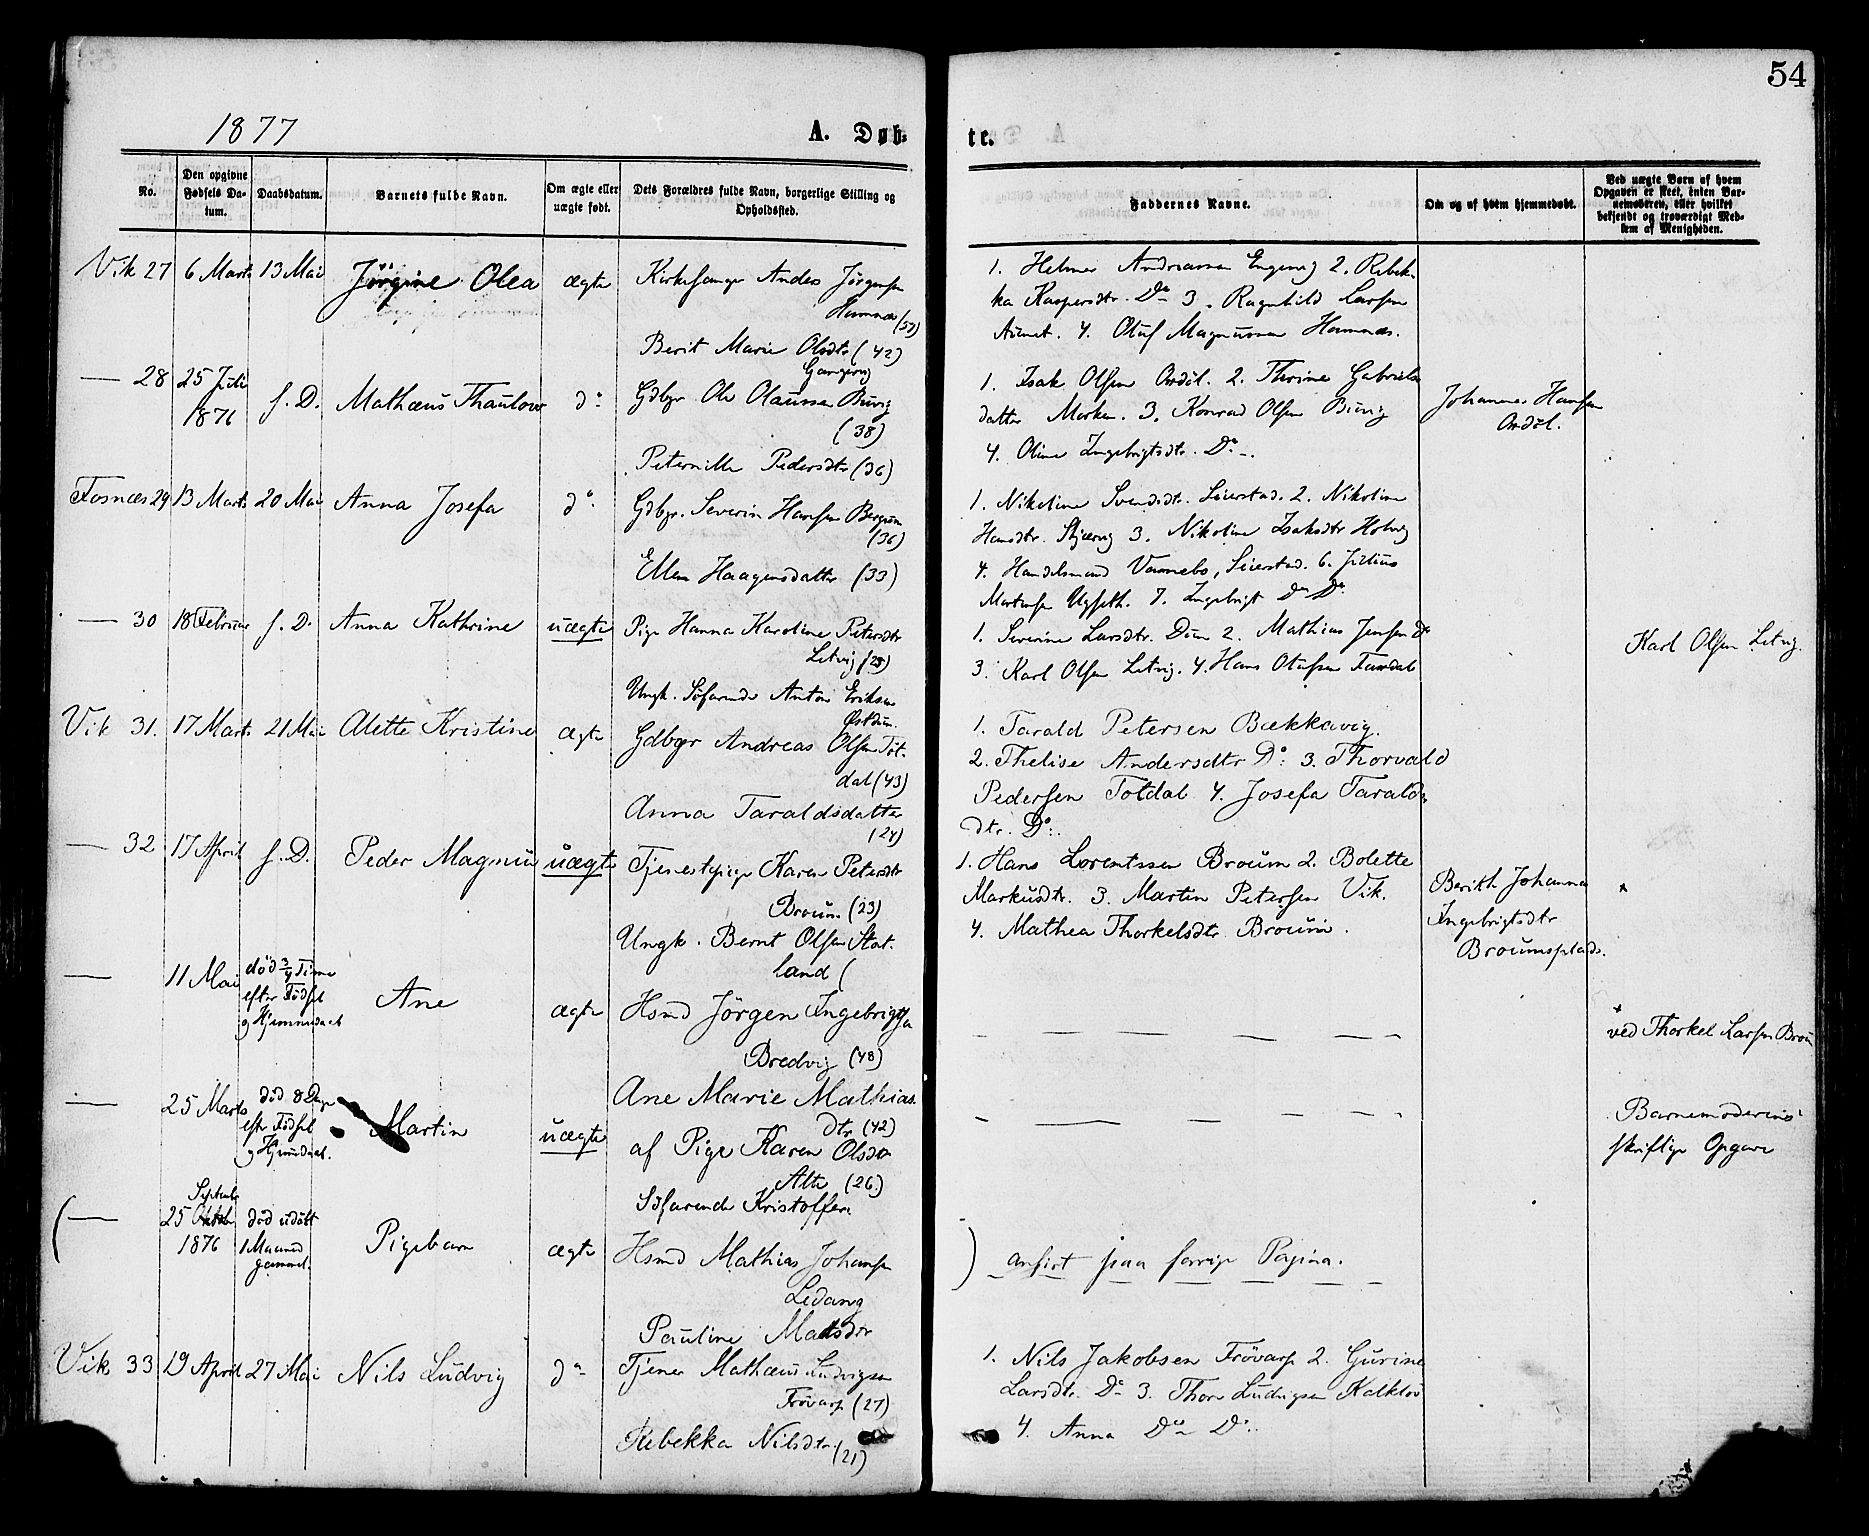 54
1877
A. Døb-
te.
No.
Den opgivne Fødsels Da-tum.
Daabsdatum.
Barnets fulde Navn.
Om ægte eller uægte født.
Dets Forældres fulde Navn, borgerlige Stilling og Opholdssted.
Faddernes Navne.
Om og af hvem hjemmedøbt.
Ved uægte Børn af hvem Opgaven er skeet, enten Bar-nemoderen, eller hvilket bekjendt og troværdigt Med-lem af Menigheden.
Vik 27 6 Marts 13 Mai Jörgine Olea ægte Kirkesanger Anders Jørgensen
Hamnæs (57)
Berit Marie Olsdtr (42)
1. Helmer Andreassen Engenvig 2. Rebek-
ka Kaspersdtr. Do 3. Ragnhild Larsen
Aunet. 4. Oluf Magnussen Hamnæs.
— 28 25 Juli
1876 s. D. Mathæus Thaulow do Gdbgr Ole Olaussen Burvig
(38)
Peternille Pedersdtr (36)
1. Isak Olsen Ordøl. 2. Thrine Gabriels-
datter Merken. 3. Konrad Olsen Burvig
4. Oline Ingebrigtsdtr. Do.
Johannes Hansen
Ordøl.
Fosnæs 29 13 Marts 20 Mai Anna Josefa do Gdbgr. Severin Hansen Bergum
(36)
Ellen Haagensdatter (33)
1. Nikoline Svendsdtr. Seierstad. 2. Nikoline
Hansdtr. Skjærvig 3. Nikoline Isaksdtr Holvig
4. Handelsmand Vannebo, Seierstad. 6. Julius
Martinsen Ugseth. 7. Ingebrigt Do Do
— 30 18 Februar s. D. Anna Kathrine uægte Pige Hanna Karoline Petersdtr
Letvig (23)
Ungk. Søfarende Anton Eriksen
1. Severine Larsdtr. Duun 2. Mathias Jensen Do
3. Karl Olsen Letvig. 4. Hans Olufsen Faksdal
Karl Olsen Letvig.
Vik 31. 17 Marts 21 Mai Alette Kristine ægte Gdbgr Andreas Olsen Töt-
dal (43)
Anna Taraldsdatter
(24)
1. Tarald Petersen Bækkavig.
2. Thelise Andersdtr Do: 3. Thorvald
Pedersen Totdal 4. Josefa Taralds-
dtr. Do.
— 32 17 April s. D. Peder Magnus uægte Tjenestepige Karen Petersdtr
Broum. (23)
Ungk. Bernt Olsen Stat-
land (
1. Hans Lorentssen Broum 2. Bolette
Markusdtr. 3. Martin Petersen Vik.
4. Mathea Thorkelsdtr Broum.
Berith Johanna
Ingebrigtsdtr
Broumsplads.
— 11 Mai død 3/4 Time
efter Födsel
og Hjemmedøbt
Ane ægte Hsmd Jörgen Ingebrigtsen
Bredvig (48)
Ane Marie Mathias-
dtr (42)
ved Thorkel Larsen Broum
— 25 Marts død 8 Dage
eftr Födsel
og Hjemdøbt.
Martin uægte af Pige Karen Olsdtr
Alte (26.)
Söfarende Kristoffer
Barnemoderens
skriftlige Opgave
( — September
25
1876 død udøbt
1 Maaned
gammel.
Pigebarn ægte Hsmd Mathias Johansen
Ledang
Pauline Matsdtr
) anført paa forrige Pagina.
Vik 33 19 April 27 Mai Nils Ludvig do Tjener Mathæus Ludvigsen
Frövarp (27)
Rebekka Nilsdtr (21)
1. Nils Jakobsen Frövarp 2. Gurine
Larsdtr. Do 3. Thore Ludvigsen Kalklöv
4. Anna Do Do.